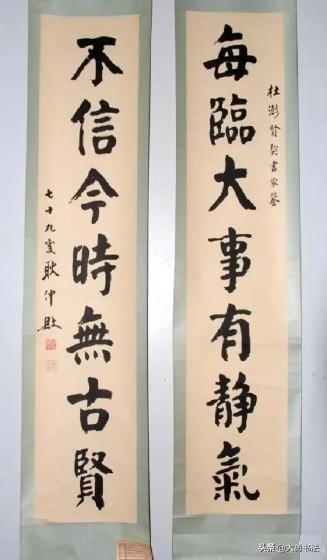 每臨大事有靜氣
杜澎賢契書家鉴
不信今時無古賢
七十九叟耿仲敭
头条@大羽书法